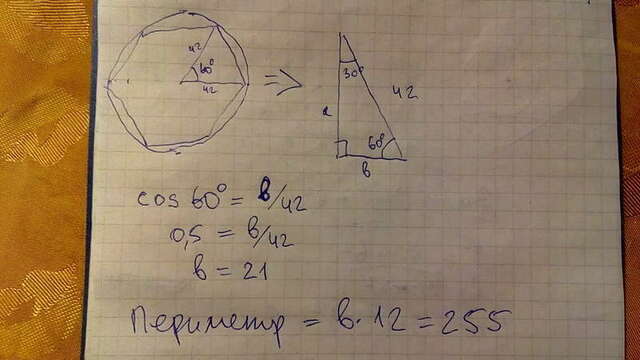 42
60°
42
⇒
30°
42
a
60°
в
cos 60° = в/42
0,5 = в/42
в = 21
Периметр = в · 12 = 255